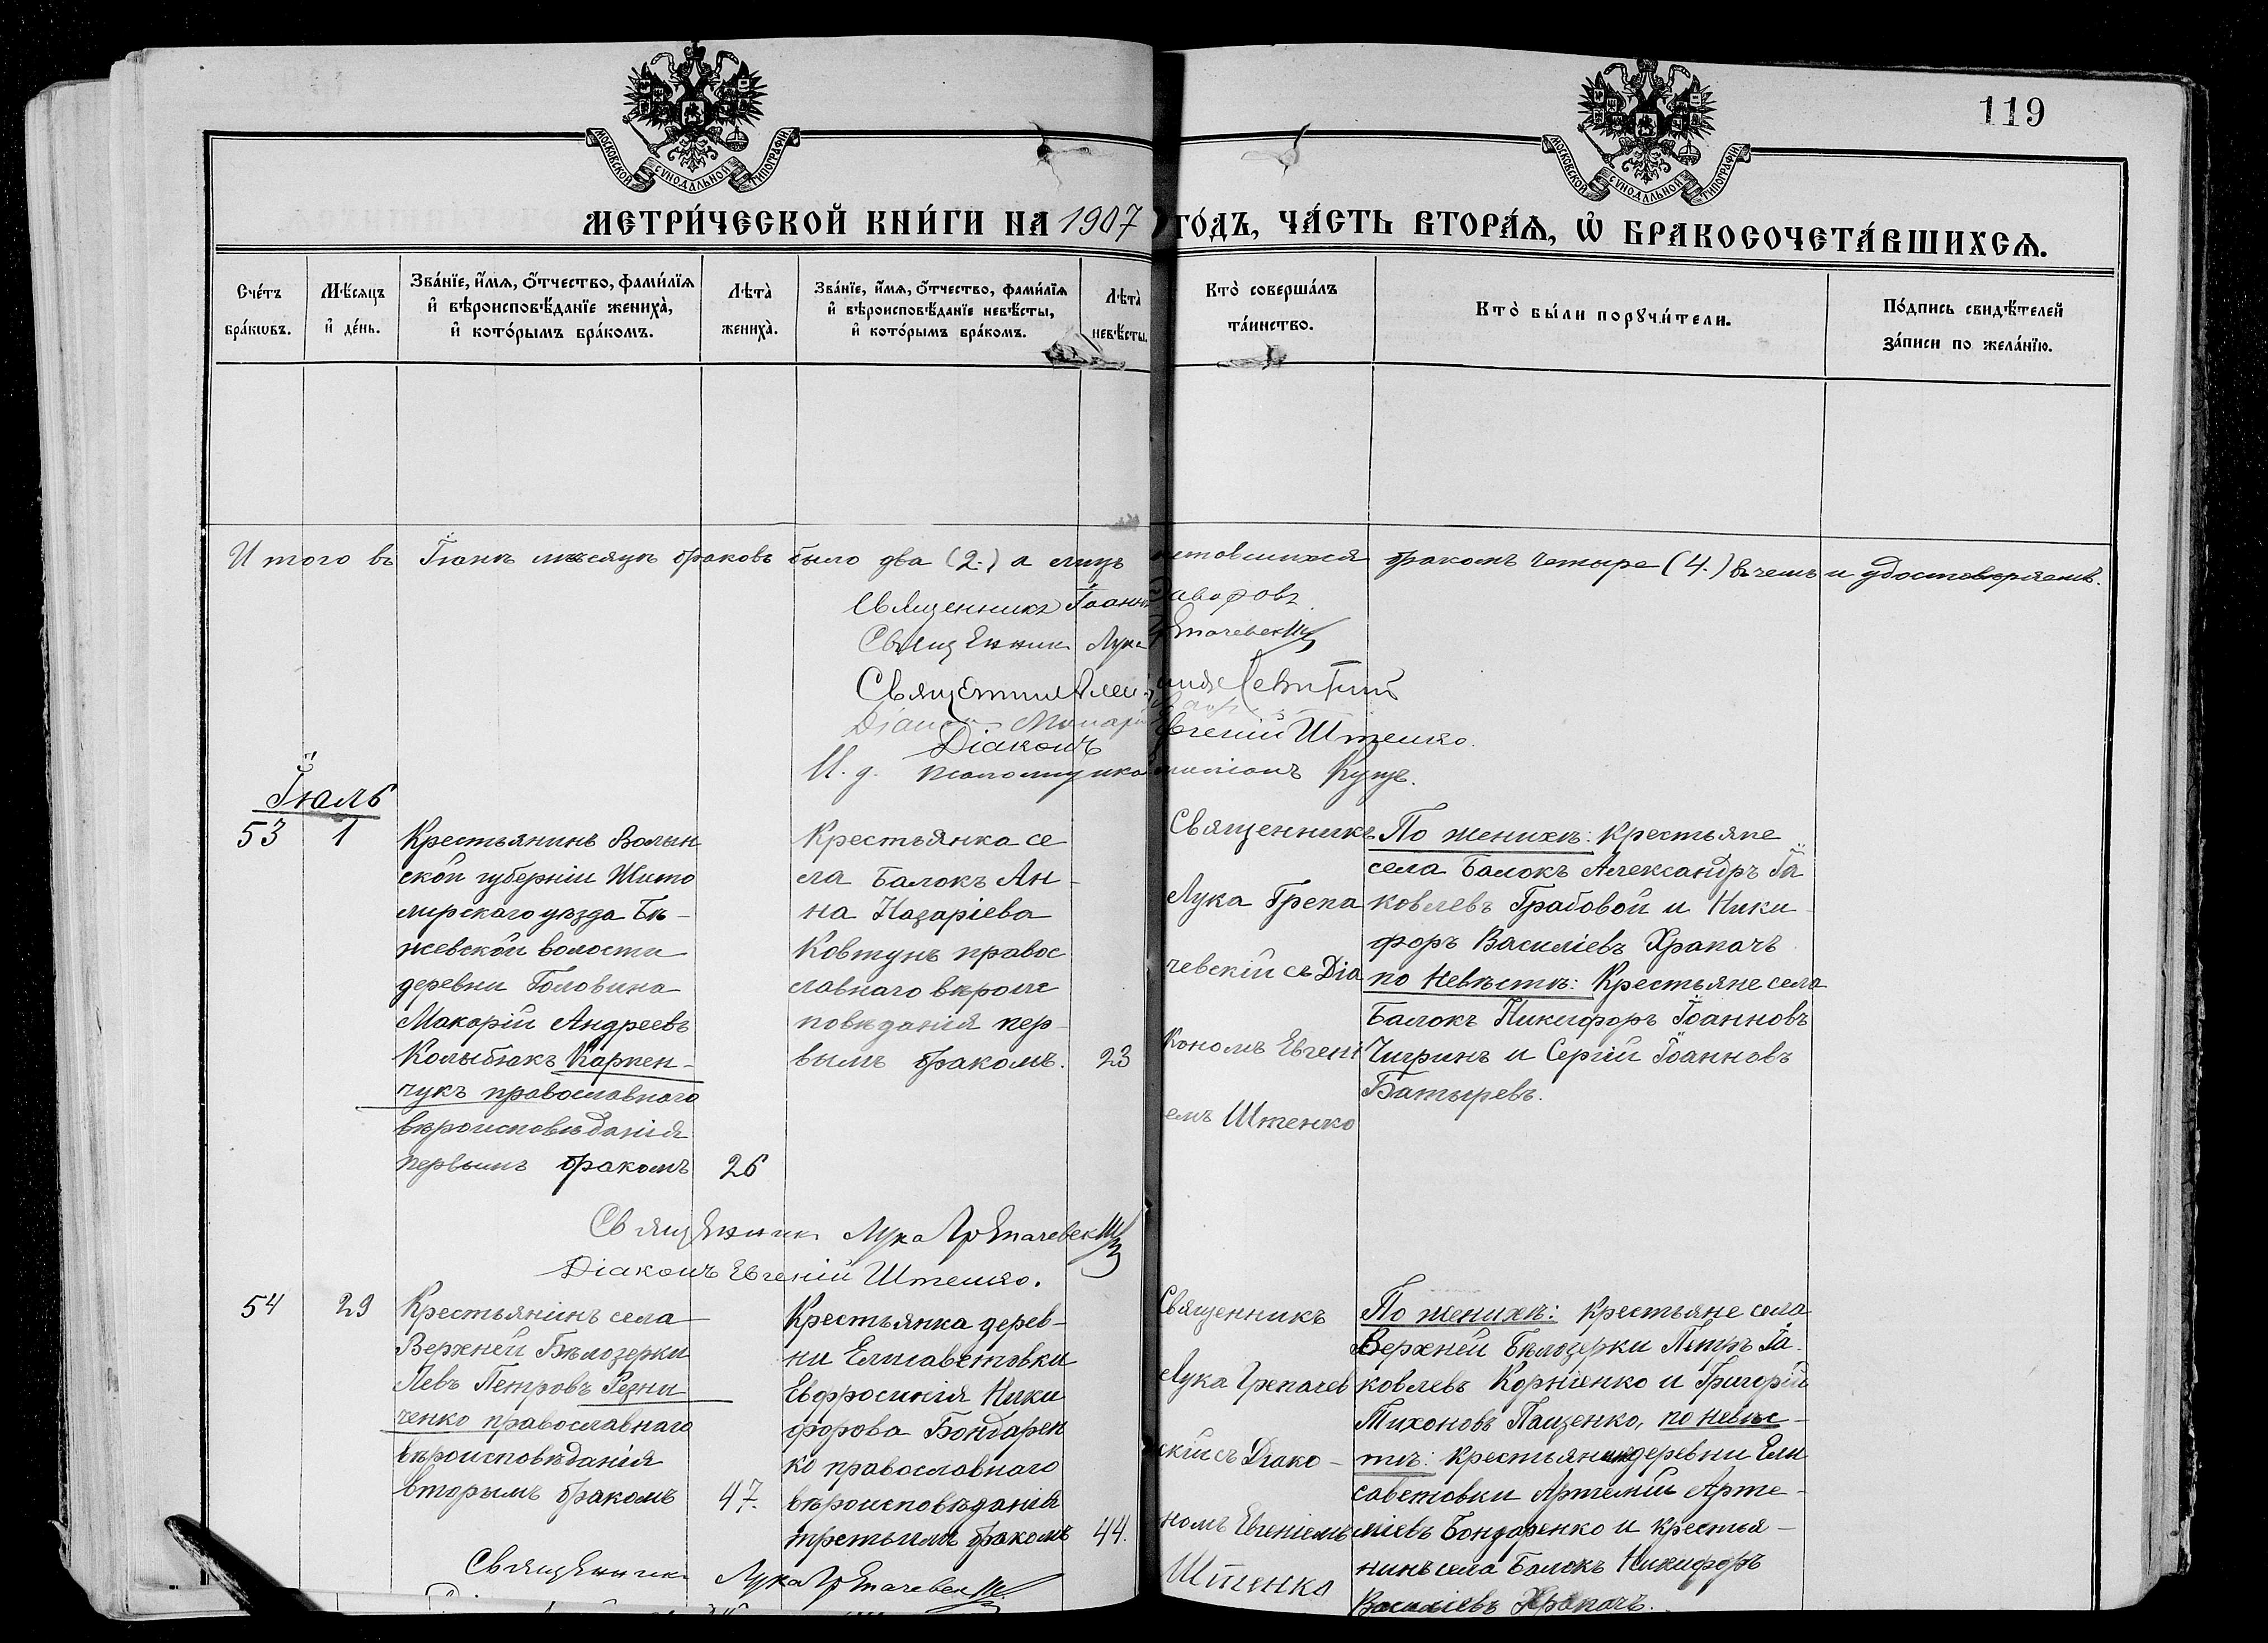 119
МОСКОВСКОЙ СѴНОДАЛЬНОЙ ТИПОГРАФІИ
МОСКОВСКОЙ СѴНОДАЛЬНОЙ ТИПОГРАФІИ
МЕТРИ́ЧЕСКОЙ КНИ́ГИ НА 1907 ГО́ДЪ, ЧА́СТЬ ВТОРА́Ѧ, Ѡ҆ БРАКОСОЧЕТА́ВШИХСѦ.
Сче́тъ бра́кωвъ.
Мѣ́сяцъ и҆ де́нь.
Зва́нїе, и҆́мѧ, ѻ҆́тчество, фами́лїѧ
и҆ вѣроисповѣ́данїе жениха̀,
и҆ кото́рымъ бра́комъ.
Лѣта̀ жениха̀.
Зва́нїе, и҆́мѧ, ѻ҆́тчество, фами́лїѧ
и҆ вѣроисповѣ́данїе невѣ́сты,
и҆ кото́рымъ бра́комъ.
Лѣта̀ невѣ́сты.
Кто̀ соверша́лъ
та́инство.
Кто̀ бы́ли порꙋчи́тели.
По́дпись свидѣ́телей
за́писи по жела́нїю.
Итого въ Іюнѣ мѣсяцѣ браковъ было два (2.) а лицъ бракомъ четыре (4.) въ чемъ и удостовѣряемъ.
Священникъ Іоаннъ
Священник Лука
Діаконъ Евгеній Штенко.
И. д. псаломщика Куцъ.
Іюль
53
1
Крестьянинъ Волын
ской губерніи Жито
мирскаго уѣзда Бѣ-
жевской волости
деревни Головина
Макарій Андреевъ
Колыбюкъ Карпен-
чукъ православнаго
вѣроисповѣданія
первымъ бракомъ
26
Крестьянка се
ла Балокъ Ан-
на Назаріева
Ковтунъ правос
лавнаго вѣроис
повѣданія пер-
вымъ бракомъ.
23
Священникъ
Лука Грепа
чевскій съ Діа
кономъ Евгені
емъ Штенко
По женихѣ: Крестьяне
села Балокъ Александръ Іа
ковлевъ Грабовой и Ники-
форъ Василіевъ Храпачъ
по невѣстѣ: Крестьяне села
Балокъ Никифоръ Іоанновъ
Чигринъ и Сергій Іоанновъ
Батыревъ.
Священник Лука Грепачевскій
Діаконъ Евгеній Штенко.
54
29
Крестьянинъ села
Верхней Бѣлозерки
Левъ Петровъ Резни
ченко православнаго
вѣроисповѣданія
вторымъ бракомъ
47.
Крестьянка дерев-
ни Елисаветовки
Евфросинія Ники
форова Бондарен
ко православнаго
вѣроисповѣданія
третьимъ бракомъ
44.
Священникъ
Лука Грепачев
скій съ Діако-
номъ Евгеніемъ
Штенко
По женихѣ: Крестьяне села
Верхней Бѣлозерки Петръ Іа-
ковлевъ Корніенко и Григорій
Тихоновъ Пащенко, по невѣс-
тѣ: Крестьянинъ деревни Ели
саветовки Артемій Арте-
міевъ Бондаренко и крестья-
нинъ села Балокъ Никифоръ
Василіевъ Храпачъ.
Священник Лука Грепачевскій